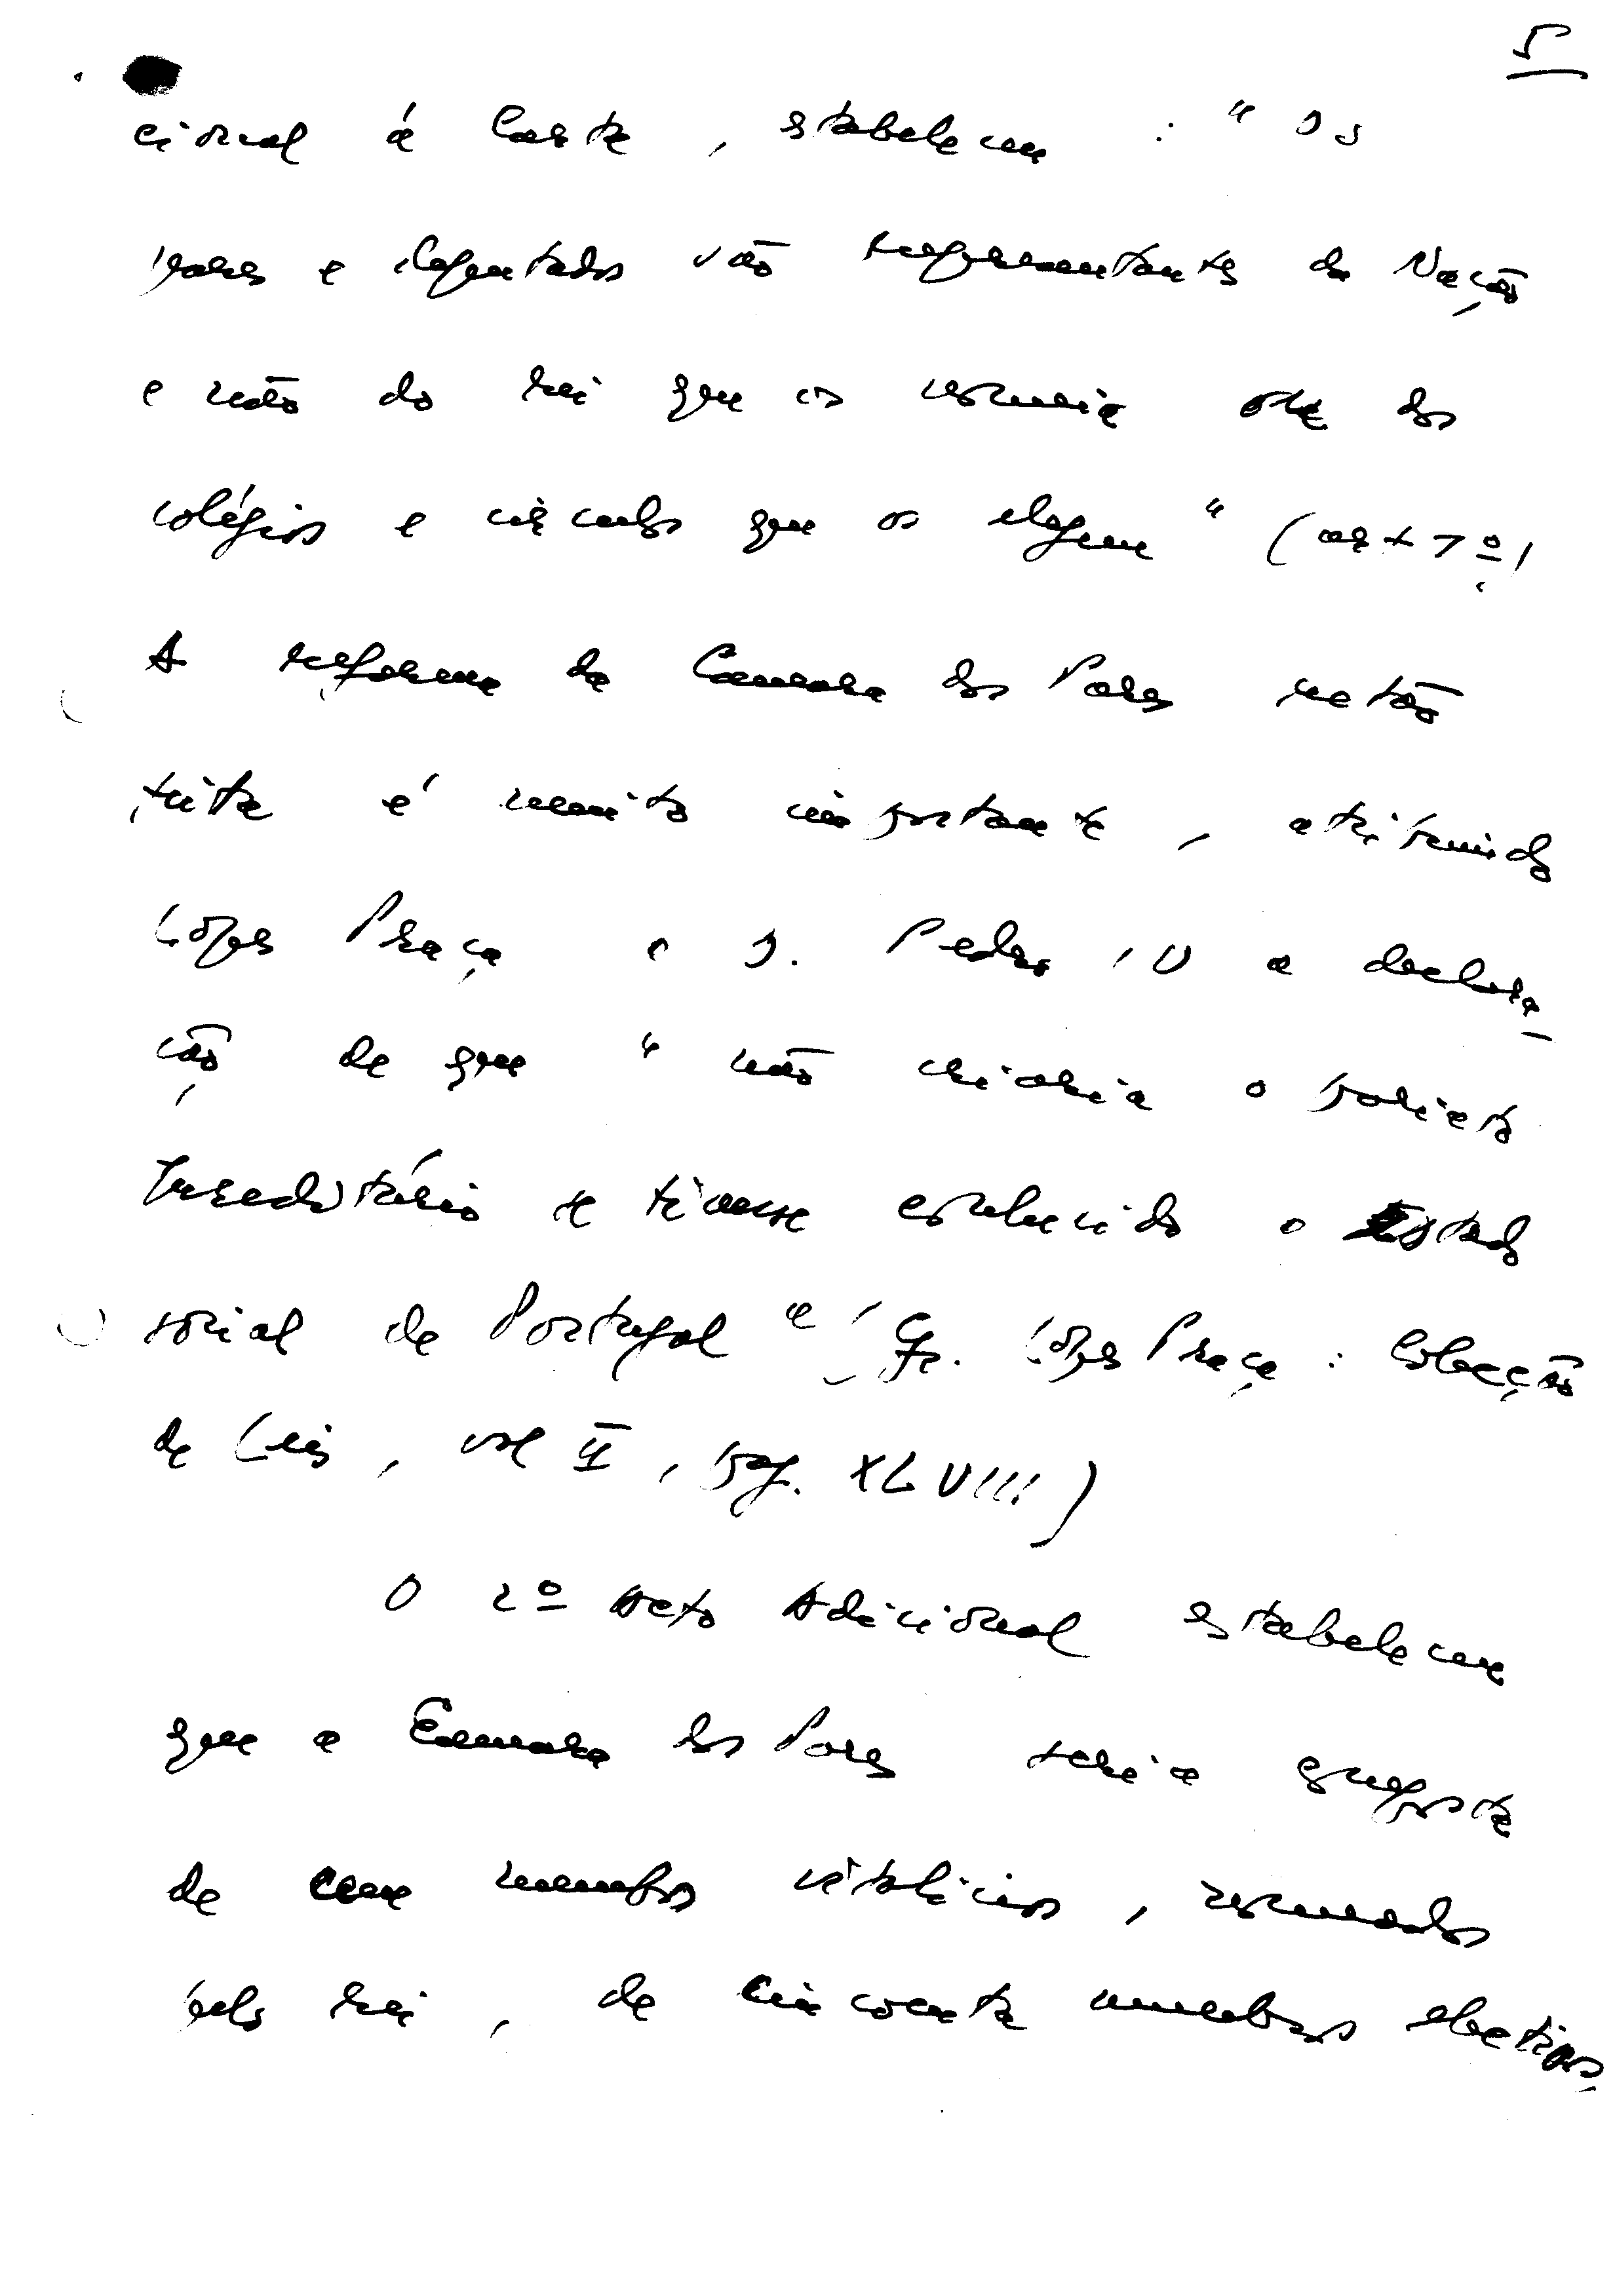 5
cional á Carta, estabeleceu: "Os
pares e deputados são representantes da Nação
e não do rei que os nomeia ou dos
colégios e circulos que os elegem" (art 1º)
A reforma da Camara dos Pares então
feita é muito importante, atribuindo
Lopes Praça a D. Pedro IV a declara-
ção de que "não criaria o pariato
hereditário se tivesse conhecido o Estado
social de Portugal" (Cfr. Lopes Praça: Colecção
de Leis, vol II, pag. XLVIII)
O 2º Acto Adicional estabeleceu
que a Camara dos Pares seria composta
de cem membros vitalicios, nomeados
pelo rei, de cincoenta membros electivos,